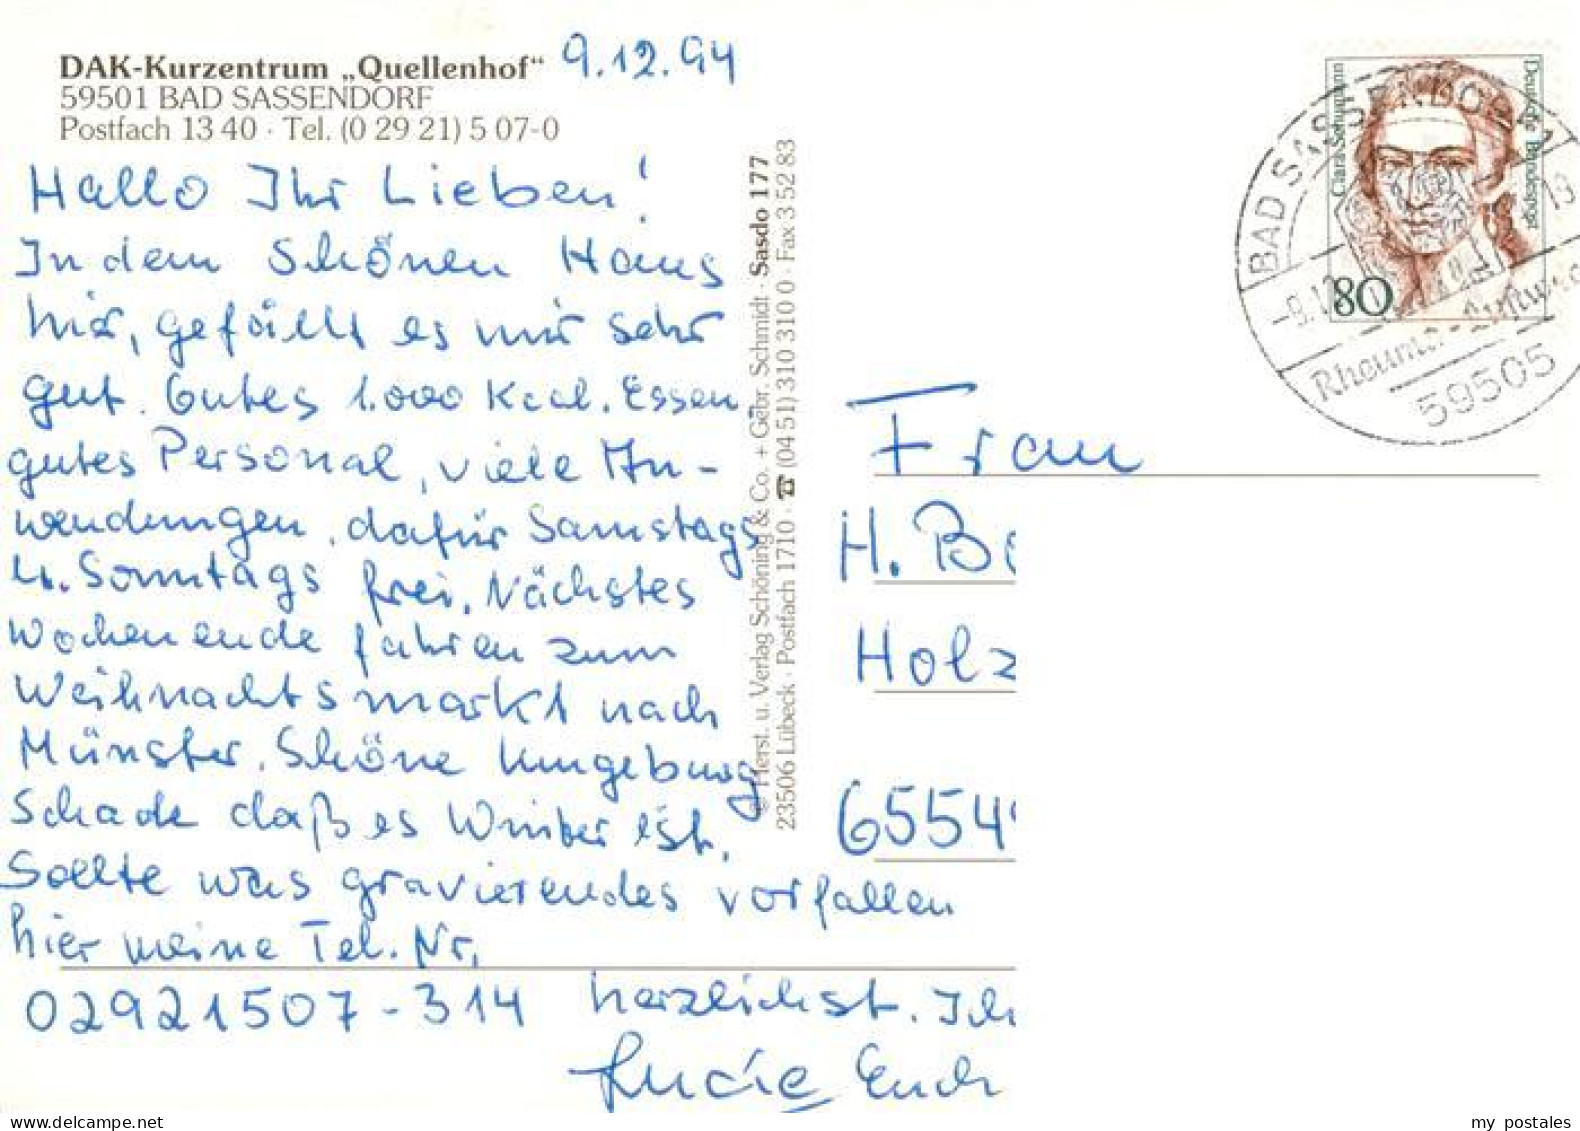 DAK-Kurzentrum „Quellenhof“ 9.12.94
59501 BAD SASSENDORF
Postfach 13 40 · Tel. (0 29 21) 5 07-0
Hallo Ihr Lieben!
In dem Schönen Haus
hier, gefällt es mir sehr
gut. Gutes 1.000 Kcal. Essen
gutes Personal, viele An-
wendungen, dafür Samstags
u. Sonntags frei. Nächstes
Wochenende fahren zum
Weihnachtsmarkt nach
Münster. Schöne Umgebung
Schade daß es Winter ist.
Sollte was gravierendes vorfallen
hier meine Tel. Nr.
02921507-314 herzlichst. Ich
Lucie Euch
© Herst. u. Verlag Schöning & Co. + Gebr. Schmidt · Sasdo 177
23506 Lübeck · Postfach 1710 · ☎ (04 51) 310 310 0 · Fax 3 52 83
Deutsche Bundespost
Clara Schumann
80
BAD SASSENDORF 1
-9.12
59505
Frau
H. Be
Holz
6554
my postales